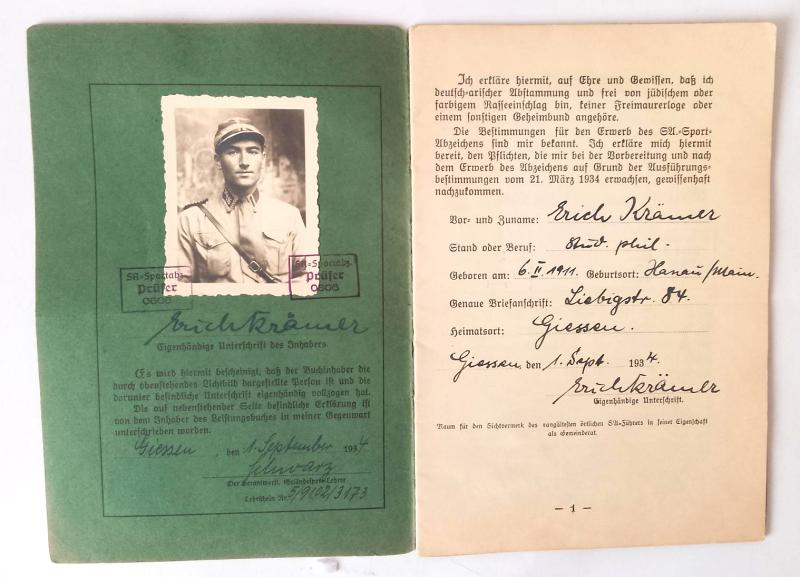 SA-Sportabz.
Prüfer
0606
SA-Sportabz.
Prüfer
0606
Erich Krämer
Eigenhändige Unterschrift des Inhabers.
Es wird hiermit bescheinigt, daß der Buchinhaber die
durch obenstehendes Lichtbild dargestellte Person ist und die
darunter befindliche Unterschrift eigenhändig vollzogen hat.
Die auf nebenstehender Seite befindliche Erklärung ist
von dem Inhaber des Leistungsbuches in meiner Gegenwart
unterschrieben worden.
Giessen, den 1. September 1934
Schwarz
Der verantwortl. Geländesport-Lehrer
Lehrschein Nr. 5/9102/3173
Ich erkläre hiermit, auf Ehre und Gewissen, daß ich
deutsch-arischer Abstammung und frei von jüdischem oder
farbigem Rasseeinschlag bin, keiner Freimaurerloge oder
einem sonstigen Geheimbund angehöre.
Die Bestimmungen für den Erwerb des SA.-Sport-
Abzeichens sind mir bekannt. Ich erkläre mich hiermit
bereit, den Pflichten, die mir bei der Vorbereitung und nach
dem Erwerb des Abzeichens auf Grund der Ausführungs-
bestimmungen vom 21. März 1934 erwachsen, gewissenhaft
nachzukommen.
Vor- und Zuname: Erich Krämer
Stand oder Beruf: stud. phil.
Geboren am: 6. II. 1911. Geburtsort: Hanau/Main.
Genaue Briefanschrift: Liebigstr. 84.
Heimatsort: Giessen.
Giessen, den 1. Sept. 1934.
Erich Krämer
Eigenhändige Unterschrift.
Raum für den Sichtvermerk des rangältesten örtlichen SA-Führers in seiner Eigenschaft
als Gemeinderat.
— 1 —